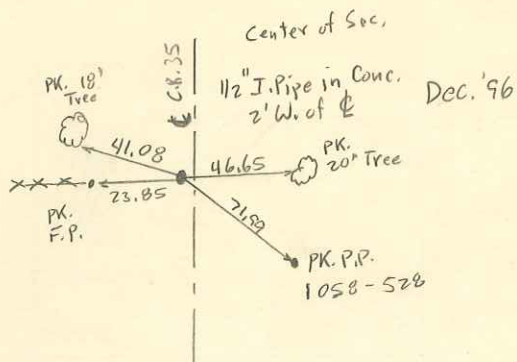 Center of Sec.
℄ C.R. 35
1 1/2" I. Pipe in Conc.
2' W. of ℄
Dec. '96
PK. 18'
Tree
41.08
46.65
PK.
20" Tree
23.85
PK.
F.P.
71.99
PK. P.P.
1058-528